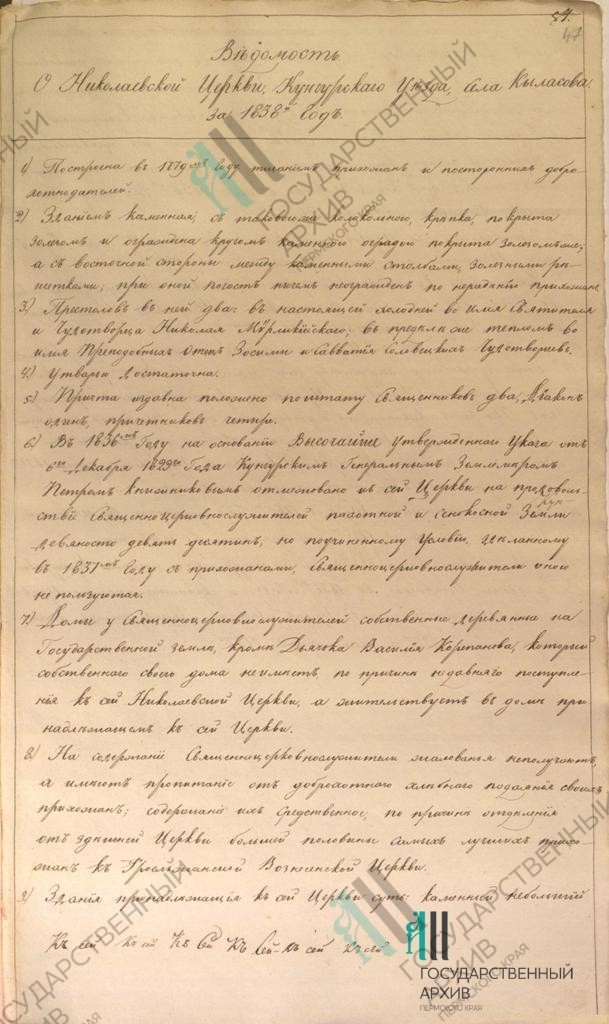 54.
47
Вѣдомость
О Николаевской Церкви, Кунгурскаго Уѣзда, села Кыласова.
за 1838й Годъ.
1) Построена въ 1779мъ Году тщаніемъ прихожанъ и постороннихъ добро-
хотнодателей.
2) Зданіемъ каменная, съ таковою же колокольнею, крѣпка, покрыта
желѣзомъ и ограждена кругомъ каменною оградою покрыта желѣзомъ же;
а съ восточной стороны между каменными столбами, желѣзными рѣ-
шетками; при оной погостъ ничѣмъ неогражденъ по нераденію прихожанъ
3) Престоловъ въ ней два: въ настоящей холодной во имя Святителя
и Чудотворца Николая Мѵрликійскаго; въ предѣлѣ же тепломъ во
имя Преподобныхъ Отецъ Зосимы и Савватія Соловецкихъ Чудотворцевъ.
4) Утварью достаточна.
5) Причта издавна положено по штату Священниковъ два, Діаконъ
одинъ, причетниковъ четыре.
6) Въ 1836мъ Году на основаніи Высочайше утвержденнаго Указа отъ
6го Декабря 1829го Года Кунгурскимъ Генеральнымъ Землемѣромъ
Петромъ Книжниковымъ отмежевано къ сей Церкви на продоволь-
ствіе Священноцерковнослужителей пахотной и сенокосной Земли
девяносто девять десятинъ; но по условію, зделанному
въ 1837мъ Году съ прихожанами, священноцерковнослужители оною
не пользуются.
7) Домы у Священноцерковнослужителей собственные деревянные на
Государственной земли, кромѣ Дьячка Василія Корепанова, который
собственнаго своего дома неимѣетъ, по причинѣ недавняго поступле-
нія къ сей Николаевской Церкви, а жительствуетъ въ домѣ при-
надлежащемъ къ сей Церкви.
8) На содержаніе Священноцерковнослужители жалованья неполучаютъ,
а имѣютъ пропитаніе отъ доброхотнаго хлѣбнаго подаянія своихъ
прихожанъ; содержаніе ихъ средственное, по причинѣ отдѣленія
отъ здѣшней Церкви большей половины самыхъ лучшихъ прихо-
жанъ къ Вознесенской Церкви.
9) Зданія принадлежащія къ сей Церкви суть: каменный небольшій
Къ сей Къ сей Къ Сей Къ Сей Къ сей Къ сей
ГОСУДАРСТВЕННЫЙ
АРХИВ
ПЕРМСКОГО КРАЯ